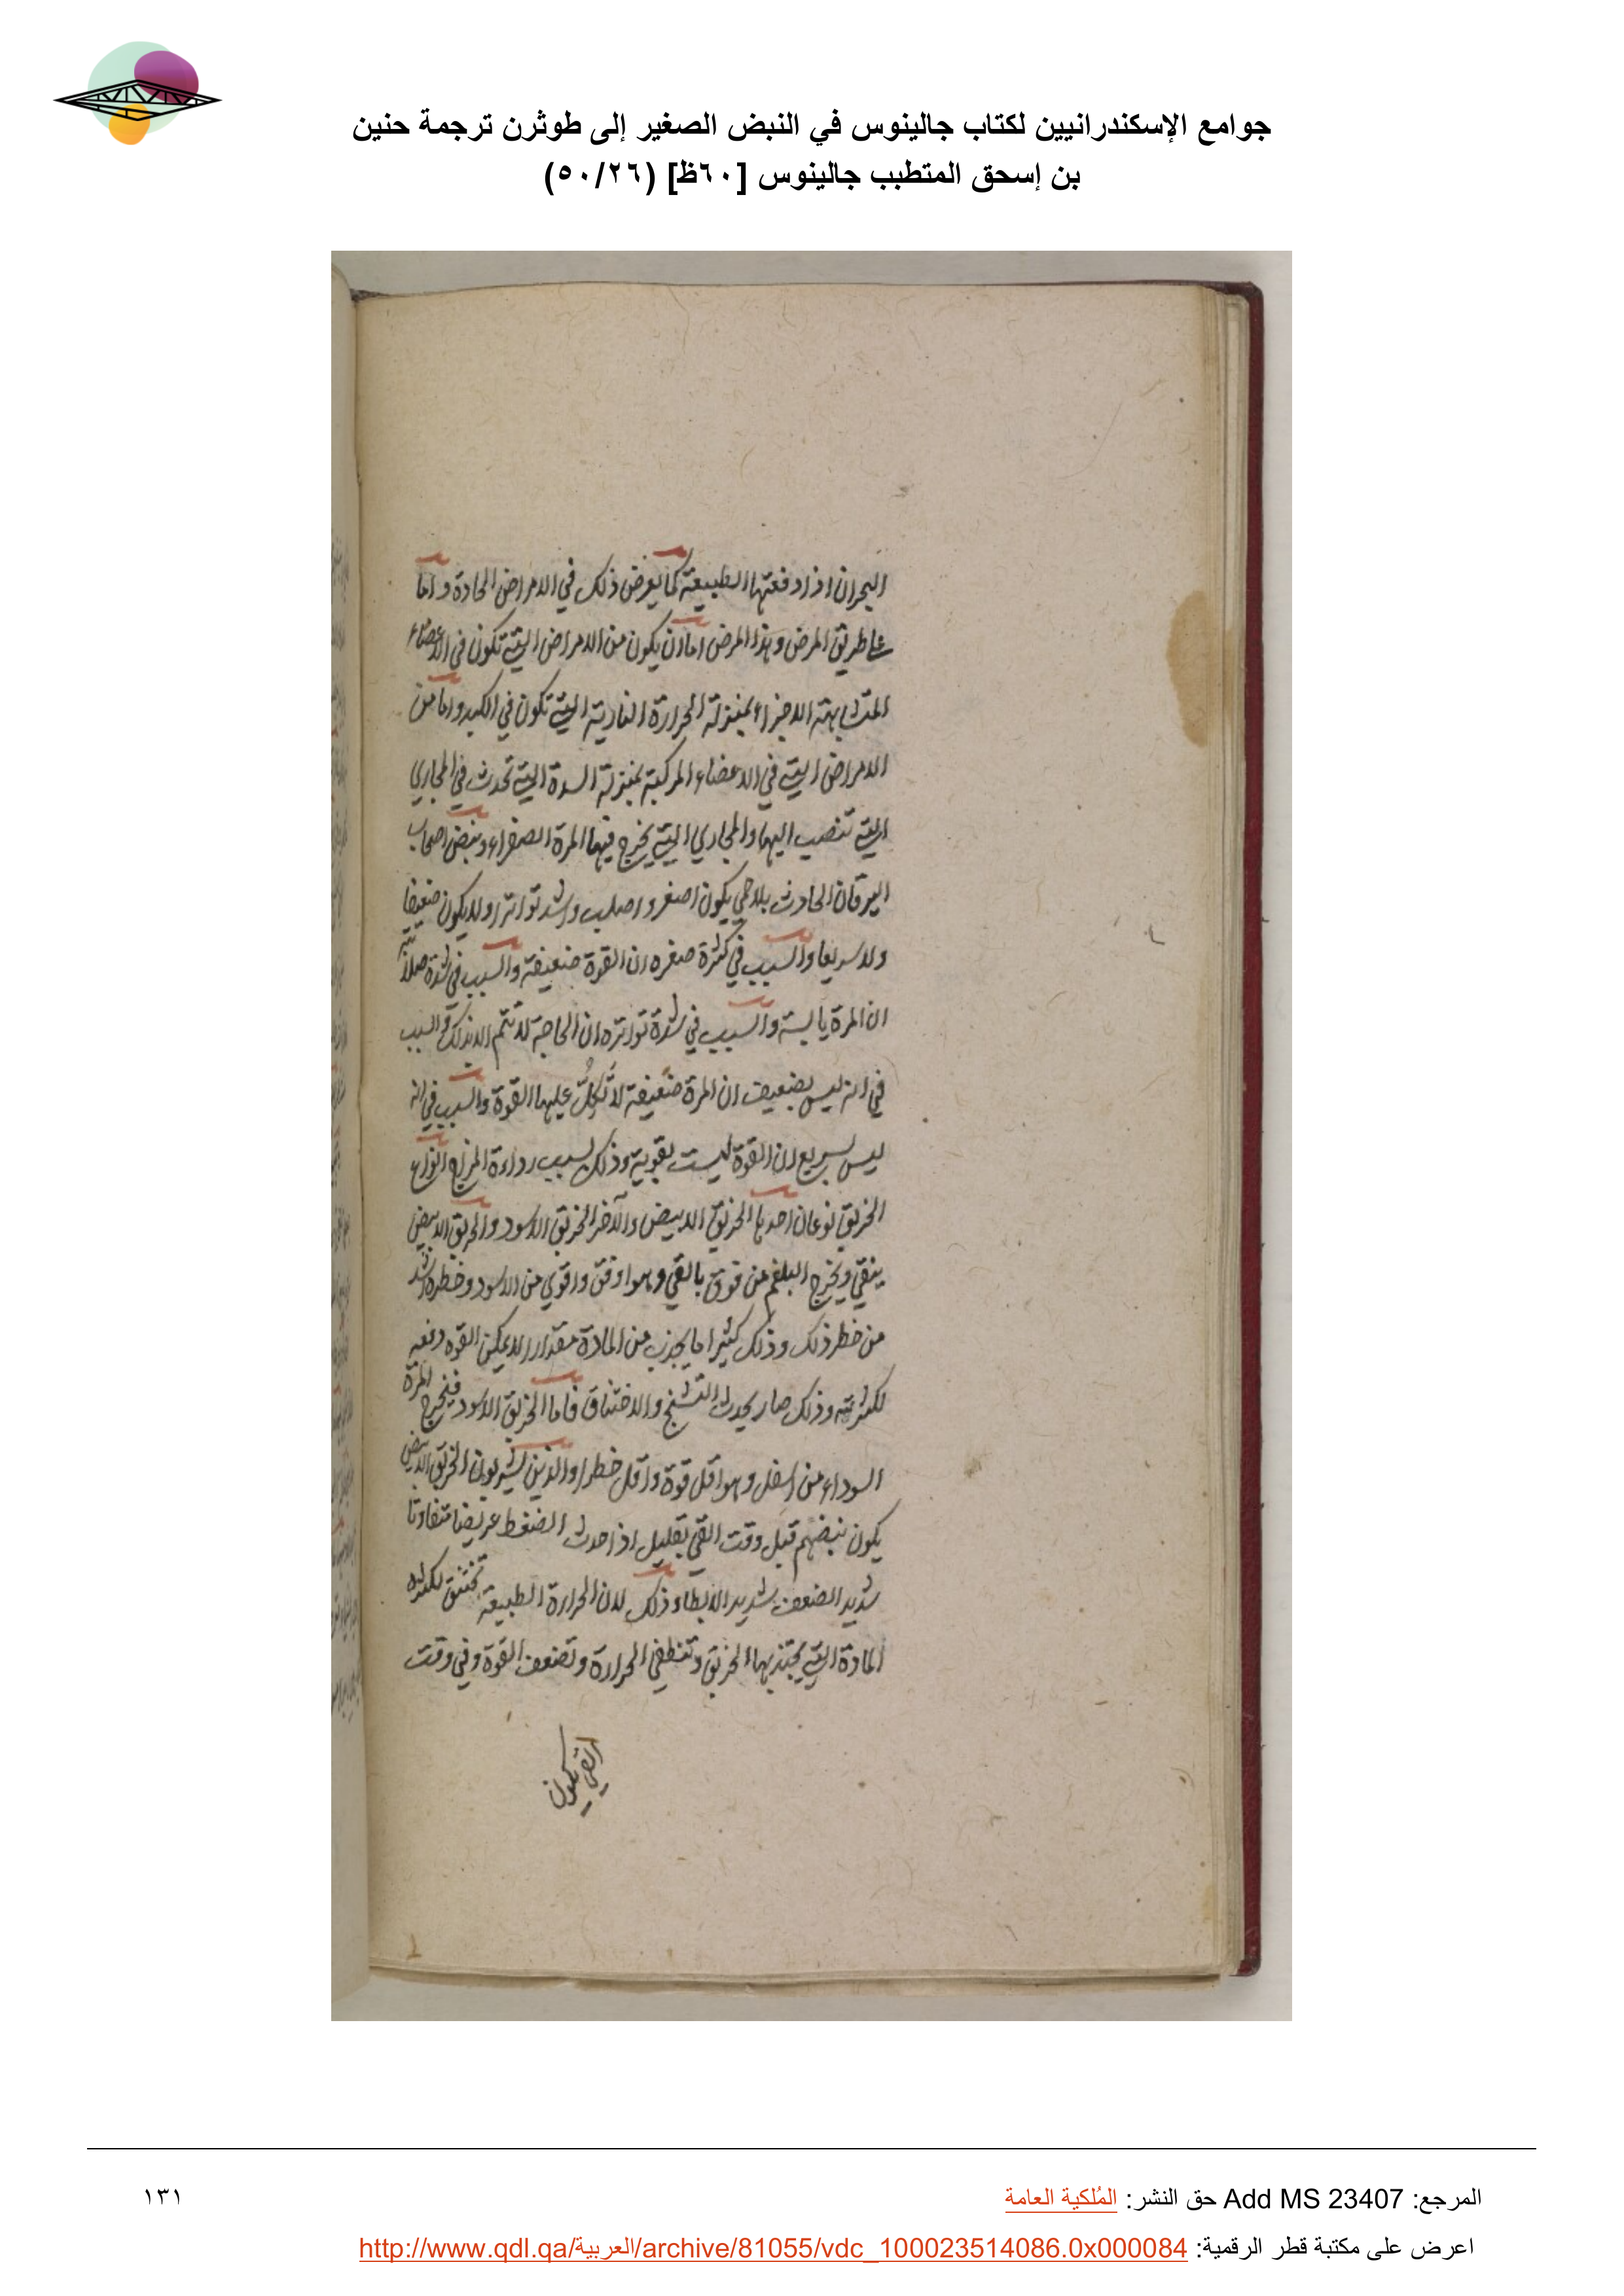 جوامع الإسكندرانيين لكتاب جالينوس في النبض الصغير إلى طوثرن ترجمة حنين
بن إسحق المتطبب جالينوس [٦٠ظ] (٥٠/٢٦)
البحران اذا دفعتها الطبيعة كما يعرض ذلك في الامراض الحادة واما
على طريق المرض وهذا المرض اما ان يكون من الامراض التي تكون في الاعضاء
المتشابهة الاجزاء بمنزلة الحرارة النارية التي تكون في الكبد واما من
الامراض التي في الاعضاء المركبة بمنزلة السدة التي تحدث في المجاري
التي تنصب اليها والمجاري التي يخرج فيها المرة الصفراء ونبض اصحاب
اليرقان الحادث بلا حمى يكون اصغر واصلب واشد تواترا ولا يكون ضعيفا
ولا سريعا والسبب في كثرة صغره ان القوة ضعيفة والسبب في شدة صلابته
ان المرة يابسة والسبب في شدة تواتره ان الحاجة لا تتم الا بذلك والسبب
في انه ليس بضعيف ان المرة ضعيفة لا تكل عليها القوة والسبب في انه
ليس بسريع ان القوة ليست بقوية وذلك لسبب رداءة المزاج انواع
الخربق نوعان احدها الخربق الابيض والآخر الخربق الاسود والخربق الابيض
ينقي ويخرج البلغم من فوق بالقي وهو اوفق واقوي من الاسود وخطره اشد
من خطر ذلك وذلك كثيرا ما يجذب من المادة مقدارا لا يمكن القوه دفعه
لكثرته وذلك صار يحدث التشنج والاختناق فاما الخربق الاسود فيخرج المرة
السوداء من اسفل وهو اقل قوة واقل خطرا والذين يشربون الخربق الابيض
يكون نبضهم قبل وقت القي بقليل اذا حدث الضغط عريضا متفاوتا
شديد الضعف شديد الابطاء وذلك لان الحرارة الطبيعة تختنق لكثرة
المادة التي يجتذبها الخربق وتنطفي الحرارة وتضعف القوة وفي وقت
القي يكون
المرجع: Add MS 23407 حق النشر: المُلكية العامة
١٣١
اعرض على مكتبة قطر الرقمية: http://www.qdl.qa/العربية/archive/81055/vdc_100023514086.0x000084